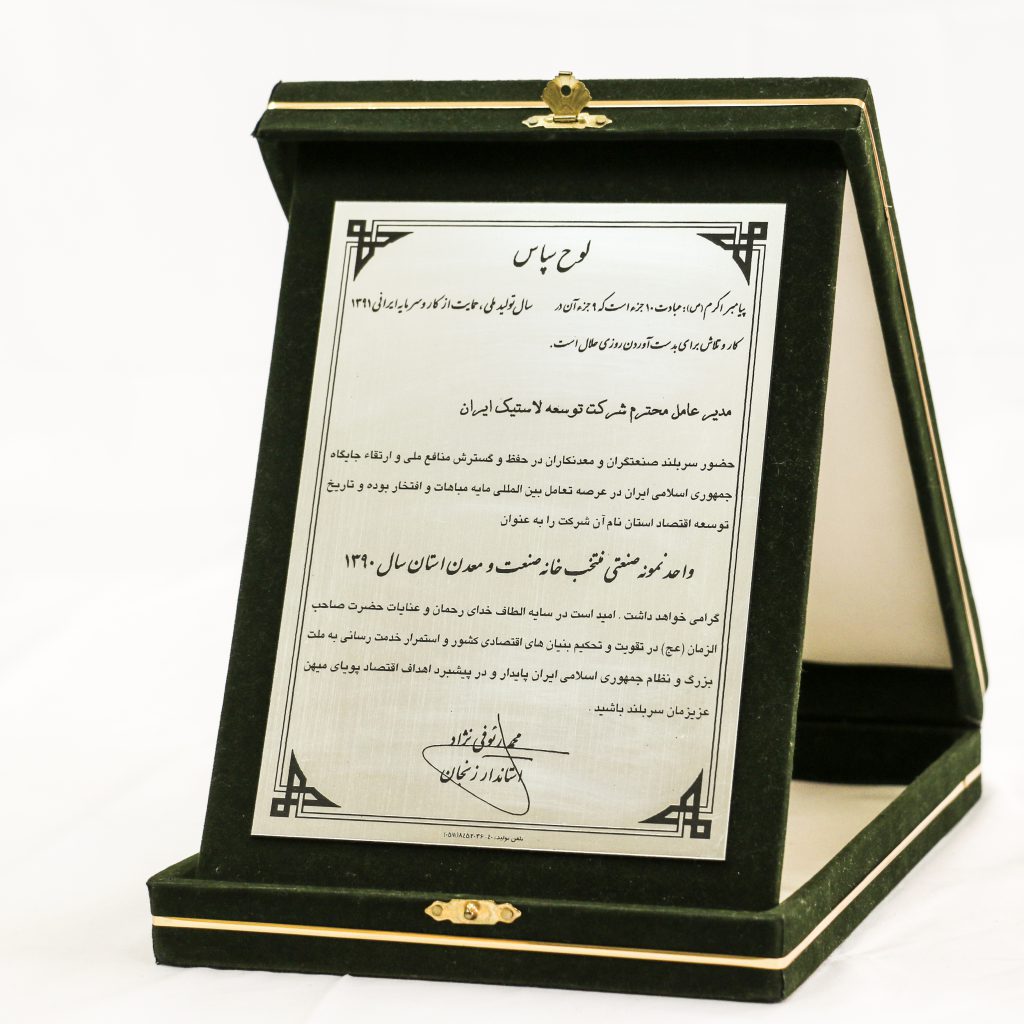 لوح سپاس
پیامبر اکرم (ص): عبادت ۱۰ جزء است که ۹ جزء آن در سال تولید ملی، حمایت از کار و سرمایه ایرانی ۱۳۹۱
کار و تلاش برای بدست آوردن روزی حلال است.
مدیر عامل محترم شرکت توسعه لاستیک ایران
حضور سربلند صنعتگران و معدنکاران در حفظ و گسترش منافع ملی و ارتقاء جایگاه
جمهوری اسلامی ایران در عرصه تعامل بین المللی مایه مباهات و افتخار بوده و تاریخ
توسعه اقتصاد استان نام آن شرکت را به عنوان
واحد نمونه صنعتی منتخب خانه صنعت و معدن استان سال ۱۳۹۰
گرامی خواهد داشت . امید است در سایه الطاف خدای رحمان و عنایات حضرت صاحب
الزمان (عج) در تقویت و تحکیم بنیان های اقتصادی کشور و استمرار خدمت رسانی به ملت
بزرگ و نظام جمهوری اسلامی ایران پایدار و در پیشبرد اهداف اقتصاد پویای میهن
عزیزمان سربلند باشید .
محمد رئوفی نژاد
استاندار زنجان
تلفن تولید: